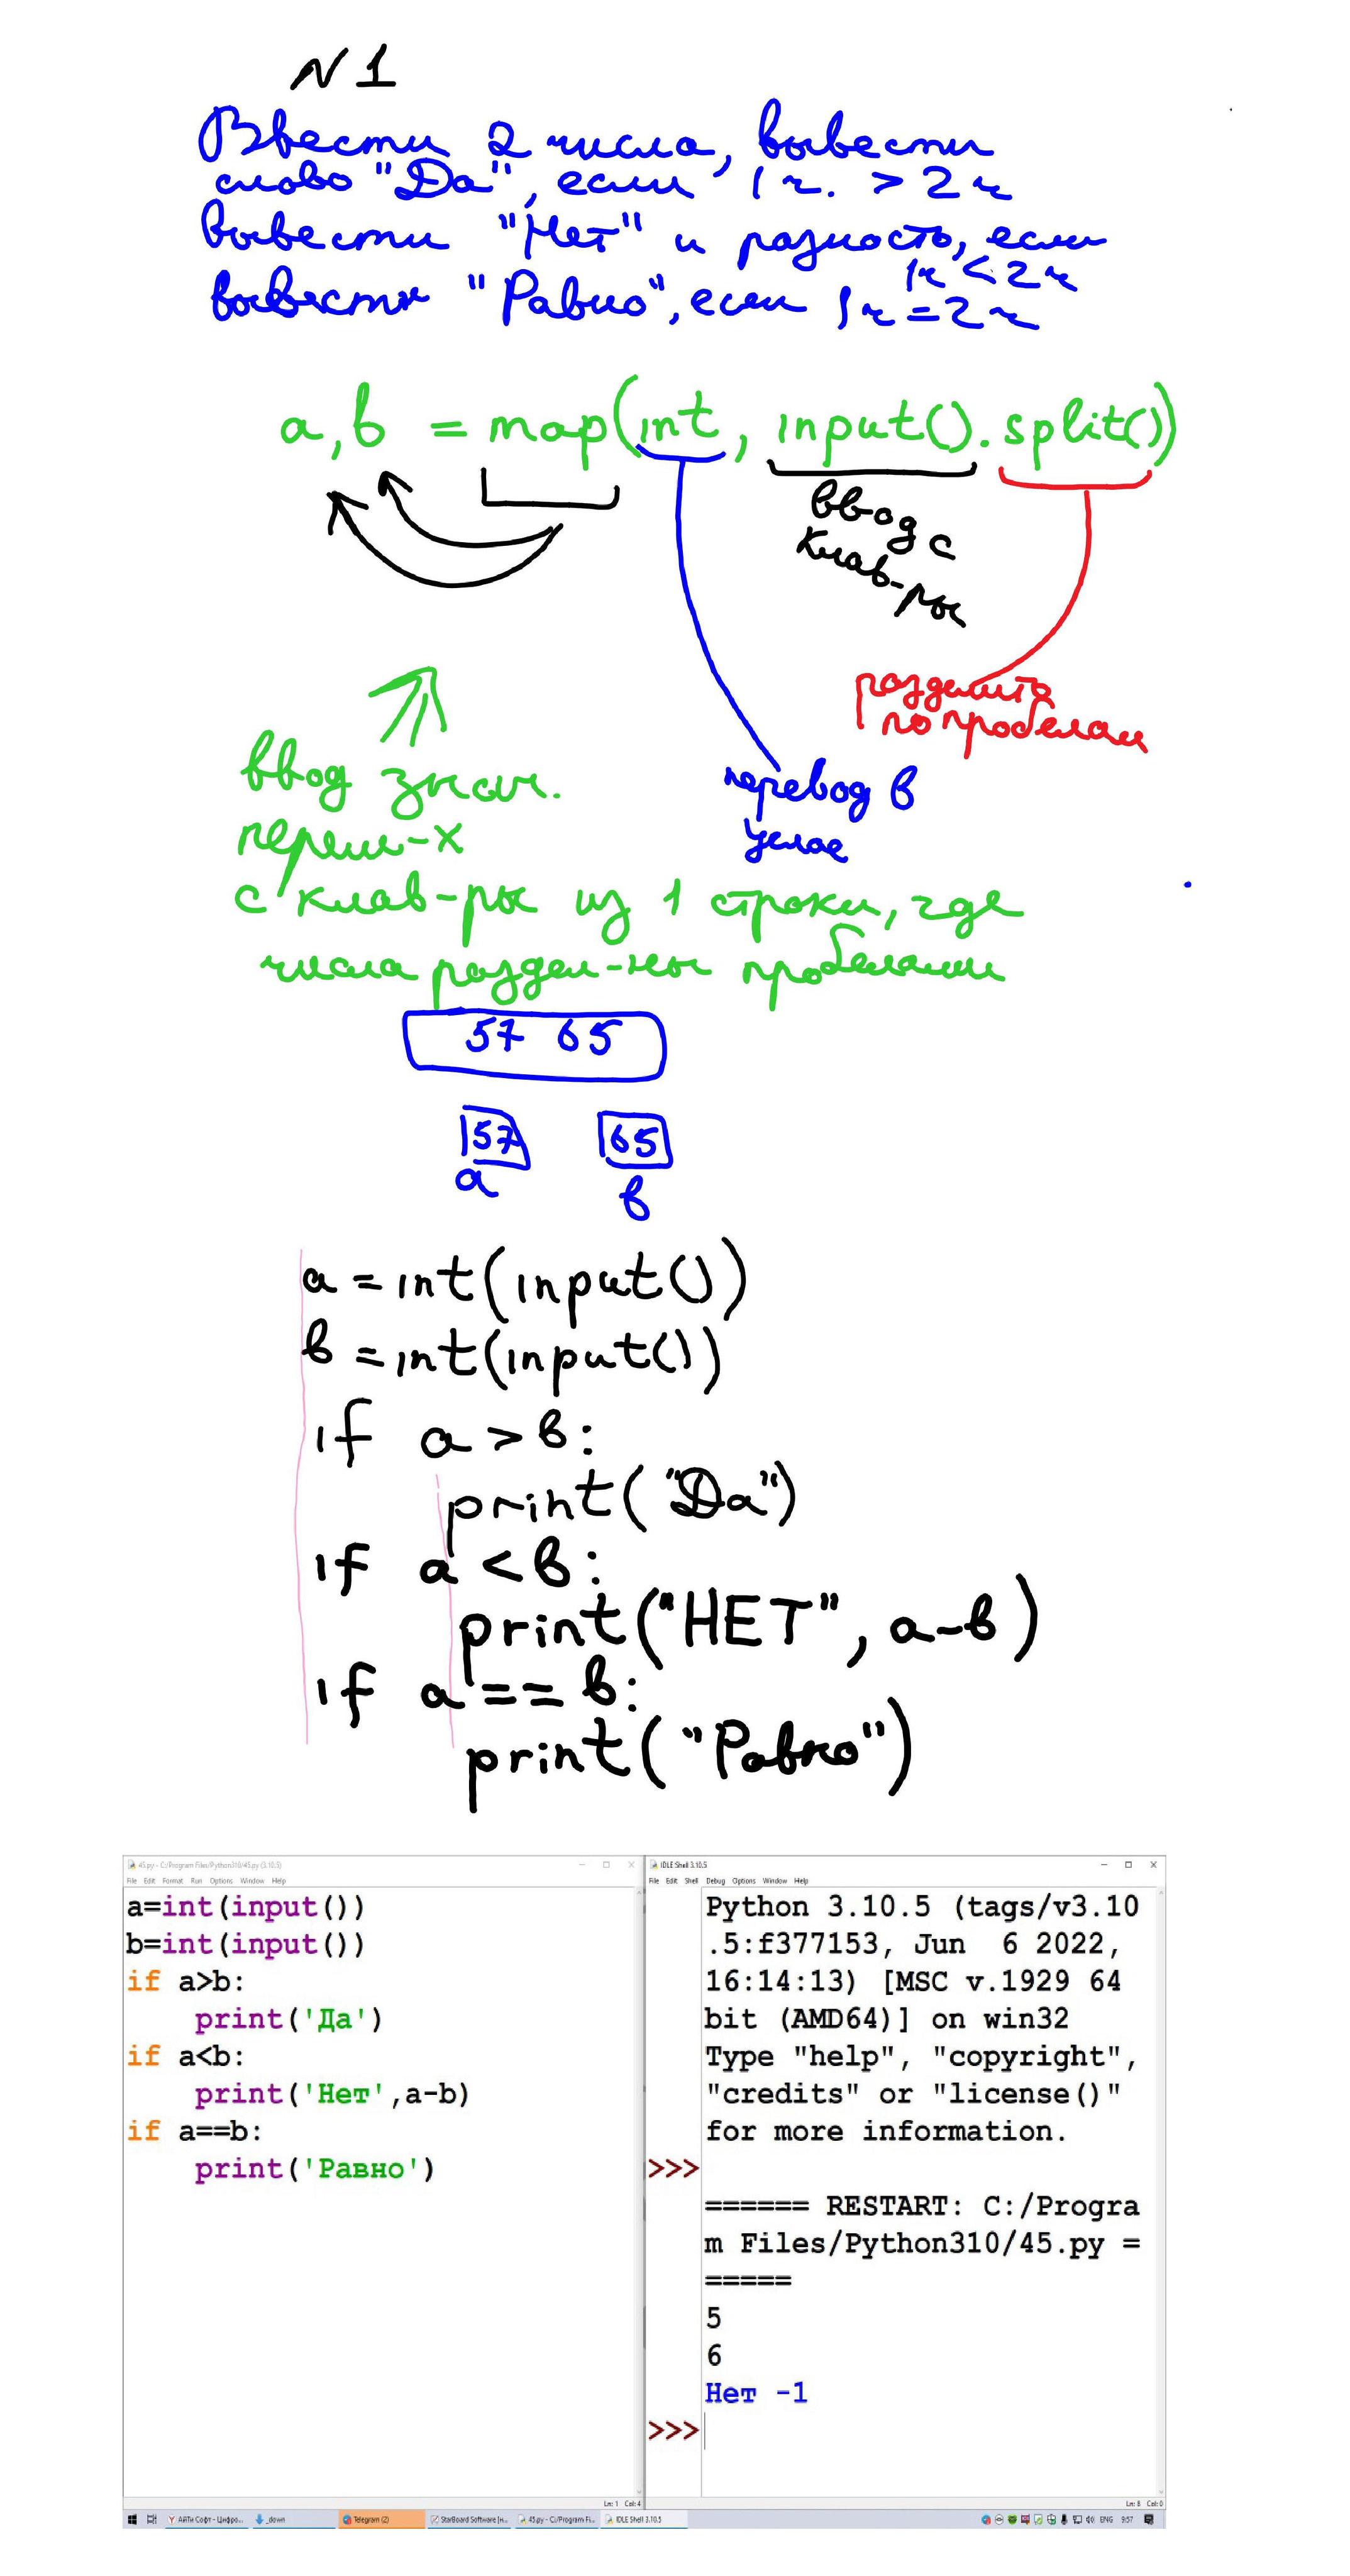 N 1
Ввести 2 числа, вывести
слово "Да", если 1 ч. > 2 ч
Вывести "Нет" и разность, если
1ч < 2ч
вывести "Равно", если 1ч = 2ч
a, b = map(int, input().split())
ввод с
клав-ры
разделить
по пробелам
ввод знач.
перем-х
перевод в
целое
с клав-ры из 1 строки, где
числа раздел-ны пробелами
57 65
57 65
a b
a = int(input())
b = int(input())
if a > b:
print("Да")
if a < b:
print("НЕТ", a-b)
if a == b:
print("Равно")
45.py - C:/Program Files/Python310/45.py (3.10.5)
File Edit Format Run Options Window Help
a=int(input())
b=int(input())
if a>b:
print('Да')
if a<b:
print('Нет',a-b)
if a==b:
print('Равно')
Ln: 1 Col: 4
IDLE Shell 3.10.5
File Edit Shell Debug Options Window Help
Python 3.10.5 (tags/v3.10
.5:f377153, Jun 6 2022,
16:14:13) [MSC v.1929 64
bit (AMD64)] on win32
Type "help", "copyright",
"credits" or "license()"
for more information.
>>>
====== RESTART: C:/Progra
m Files/Python310/45.py =
=====
5
6
Нет -1
>>>
Ln: 8 Col: 0
АйТи Софт - Цифро... _down Telegram (2) StarBoard Software [н... 45.py - C:/Program Fi... IDLE Shell 3.10.5 ENG 9:57